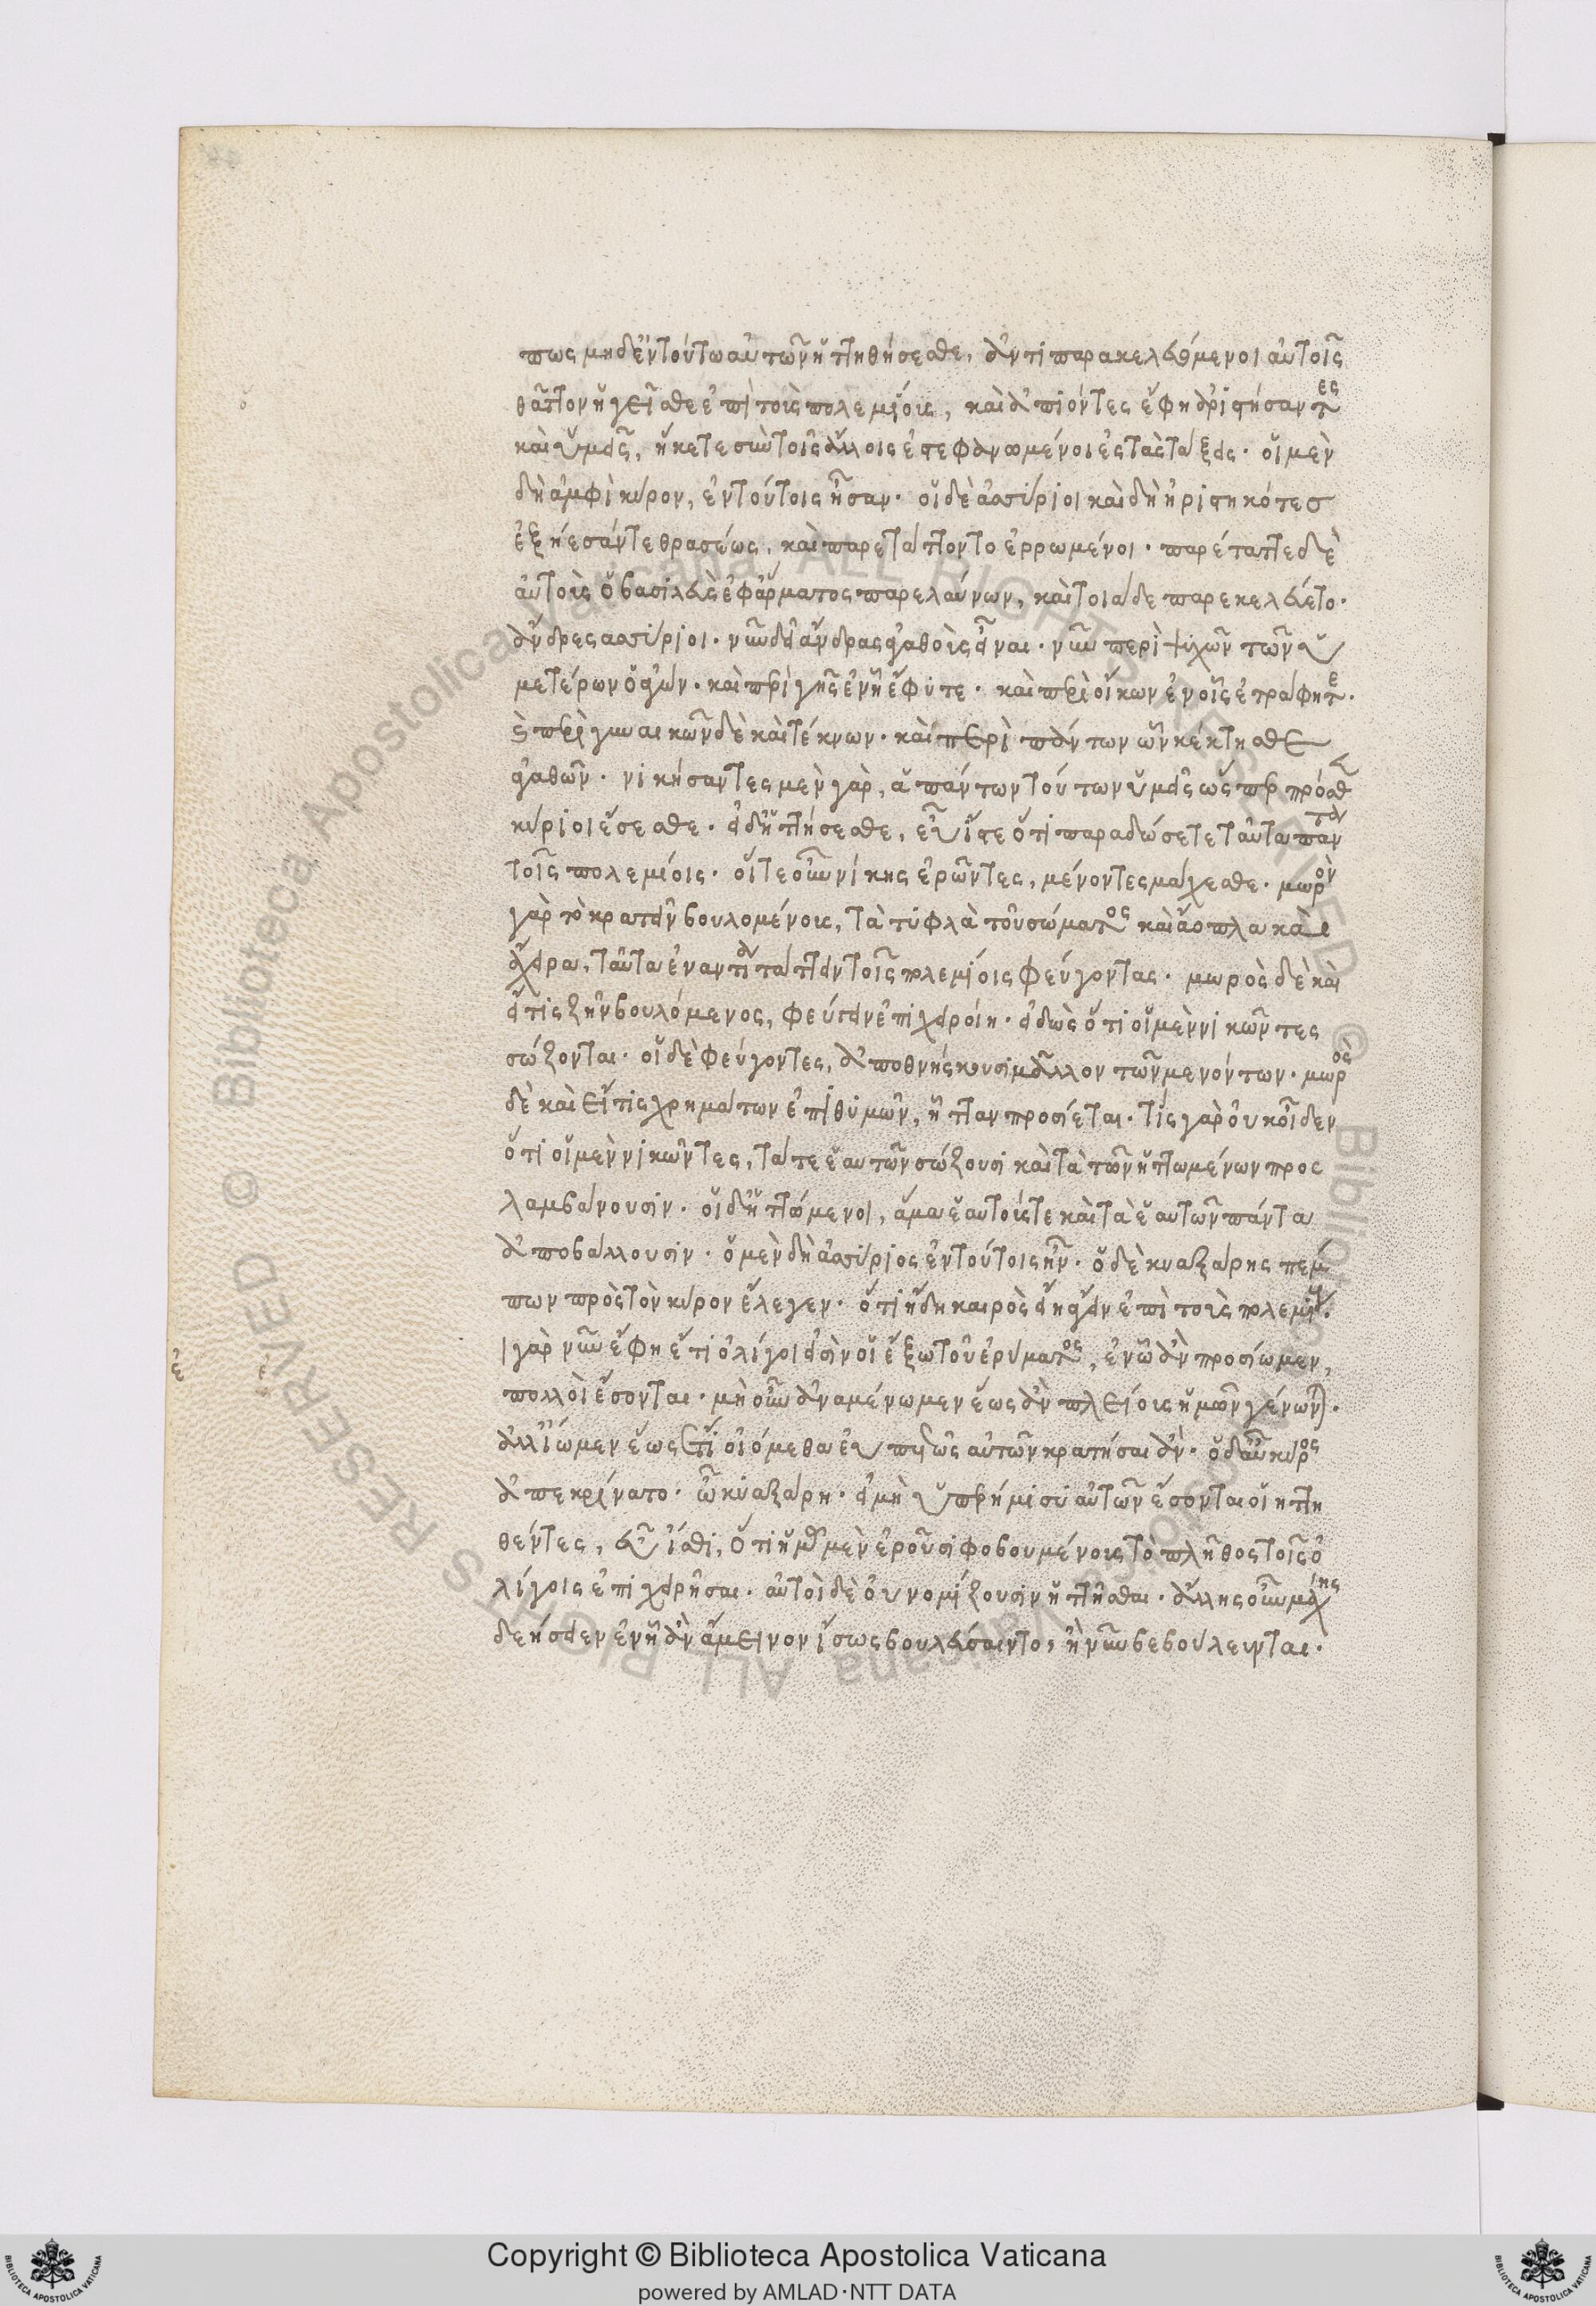 πως μηδ' ἐν τούτω αὐτῶν ἡττηθήσεσθε, ἀντιπαρακελευόμενοι αὐτοῖς
θᾶττον ἡγεῖσθε ἐπὶ τοὺς πολεμίους, καὶ ἀπιόντες ἔφη ἀριστήσαντες
καὶ ὑμεῖς, ἥκετε σὺν τοῖς ἄλλοις ἐστεφανωμένοι ἐς τὰς τάξεις. οἱ μὲν
δὴ ἀμφὶ κῦρον, ἐν τούτοις ἦσαν. οἱ δὲ ἀσσύριοι καὶ δὴ ἠριστηκότες
ἐξήεσάν τε θρασέως, καὶ παρετάττοντο ἐρρωμένοι. παρέταττε δὲ
αὐτοὺς ὁ βασιλεὺς ἐφ' ἅρματος παρελαύνων, καὶ τοιάδε παρεκελεύετο.
ἄνδρες ἀσσύριοι. νῦν δεῖ ἄνδρας ἀγαθοὺς εἶναι. νῦν περὶ ψυχῶν τῶν ὑ
μετέρων ὁ ἀγών. καὶ περὶ γῆς ἐν ᾗ ἔφυτε. καὶ περὶ οἴκων ἐν οἷς ἐτράφητε.
καὶ περὶ γυναικῶν δὲ καὶ τέκνων. καὶ περὶ πάντων ὧν κέκτησθε
ἀγαθῶν. νικήσαντες μὲν γὰρ, ἁπάντων τούτων ὑμεῖς ὥσπερ πρόσθεν
κύριοι ἔσεσθε. εἰ δ' ἡττήσεσθε, εὖ ἴστε ὅτι παραδώσετε ταῦτα πάντα
τοῖς πολεμίοις. οἷτε οὖν νίκης ἐρῶντες, μένοντες μάχεσθε. μωρὸν
γὰρ τὸ κρατεῖν βουλομένους, τὰ τυφλὰ τοῦ σώματος καὶ ἄοπλα καὶ
ἄχειρα, ταῦτα ἐναντία τάττειν τοῖς πολεμίοις φεύγοντας. μωρὸς δὲ καὶ
εἴ τις ζῆν βουλόμενος, φεύγειν ἐπιχειροίη. εἰδὼς ὅτι οἱ μὲν νικῶντες
σώζονται. οἱ δὲ φεύγοντες, ἀποθνήσκουσι μᾶλλον τῶν μενόντων. μωρὸς
δὲ καὶ εἴ τις χρημάτων ἐπιθυμῶν, ἧτταν προσίεται. τίς γὰρ οὐκ οἶδεν
ὅτι οἱ μὲν νικῶντες, τά τε ἑαυτῶν σώζουσι καὶ τὰ τῶν ἡττωμένων προς
λαμβάνουσιν. οἱ δ' ἡττώμενοι, ἅμα ἑαυτούς τε καὶ τὰ ἑαυτῶν πάντα
ἀποβάλλουσιν. ὁ μὲν δὴ ἀσσύριος ἐν τούτοις ἦν. ὁ δὲ κυαξάρης πέμ
πων πρὸς τὸν κῦρον ἔλεγεν. ὅτι ἤδη καιρὸς εἴη ἄγειν ἐπὶ τοὺς πολεμίους.
ἐ
ἰ γὰρ νῦν ἔφη ἔτι ὀλίγοι εἰσὶν οἱ ἔξω τοῦ ἐρύματος, ἐν ᾧ ἂν προσίωμεν,
πολλοὶ ἔσονται. μὴ οὖν ἀναμένωμεν ἕως ἂν πλείους ἡμῶν γένωνται.
ἀλλ' ἴωμεν ἕως ἔτι οἰόμεθα εὐπετῶς αὐτῶν κρατῆσαι ἄν. ὁ δ' αὖ κῦρος
ἀπεκρίνατο. ὦ κυαξάρη. εἰ μὴ ὑπὲρ ἥμισυ αὐτῶν ἔσονται οἱ ἡττη
θέντες, εὖ ἴσθι, ὅτι ἡμᾶς μὲν ἐροῦσι φοβουμένους τὸ πλῆθος τοῖς ὀ
λίγοις ἐπιχειρῆσαι. αὐτοὶ δὲ οὐ νομίζουσιν ἡττῆσθαι. ἄλλης οὖν μάχης
δεήσειεν ἐν ᾗ ἂν ἄμεινον ἴσως βουλεύσαιντο, ἢ νῦν βεβούλευνται.
Copyright © Biblioteca Apostolica Vaticana
powered by AMLAD·NTT DATA